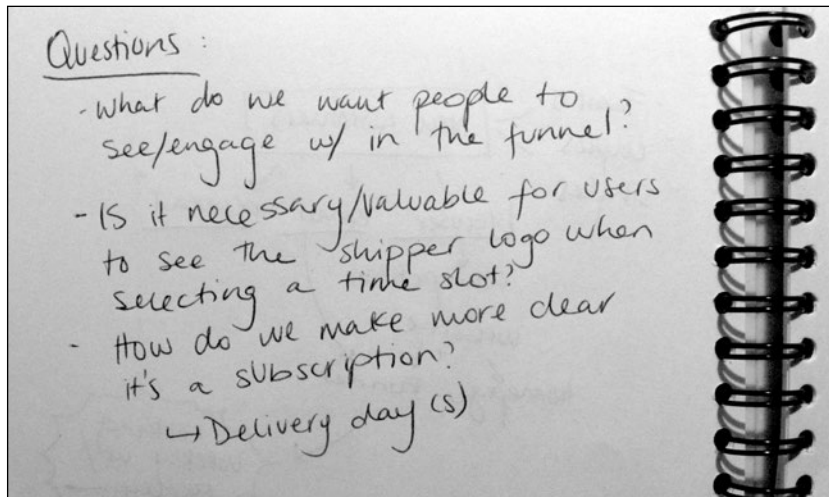 Questions:
- What do we want people to
see/engage w/ in the funnel?
- Is it necessary/valuable for users
to see the shipper logo when
selecting a time slot?
- How do we make more clear
it's a subscription?
↳ Delivery day(s)